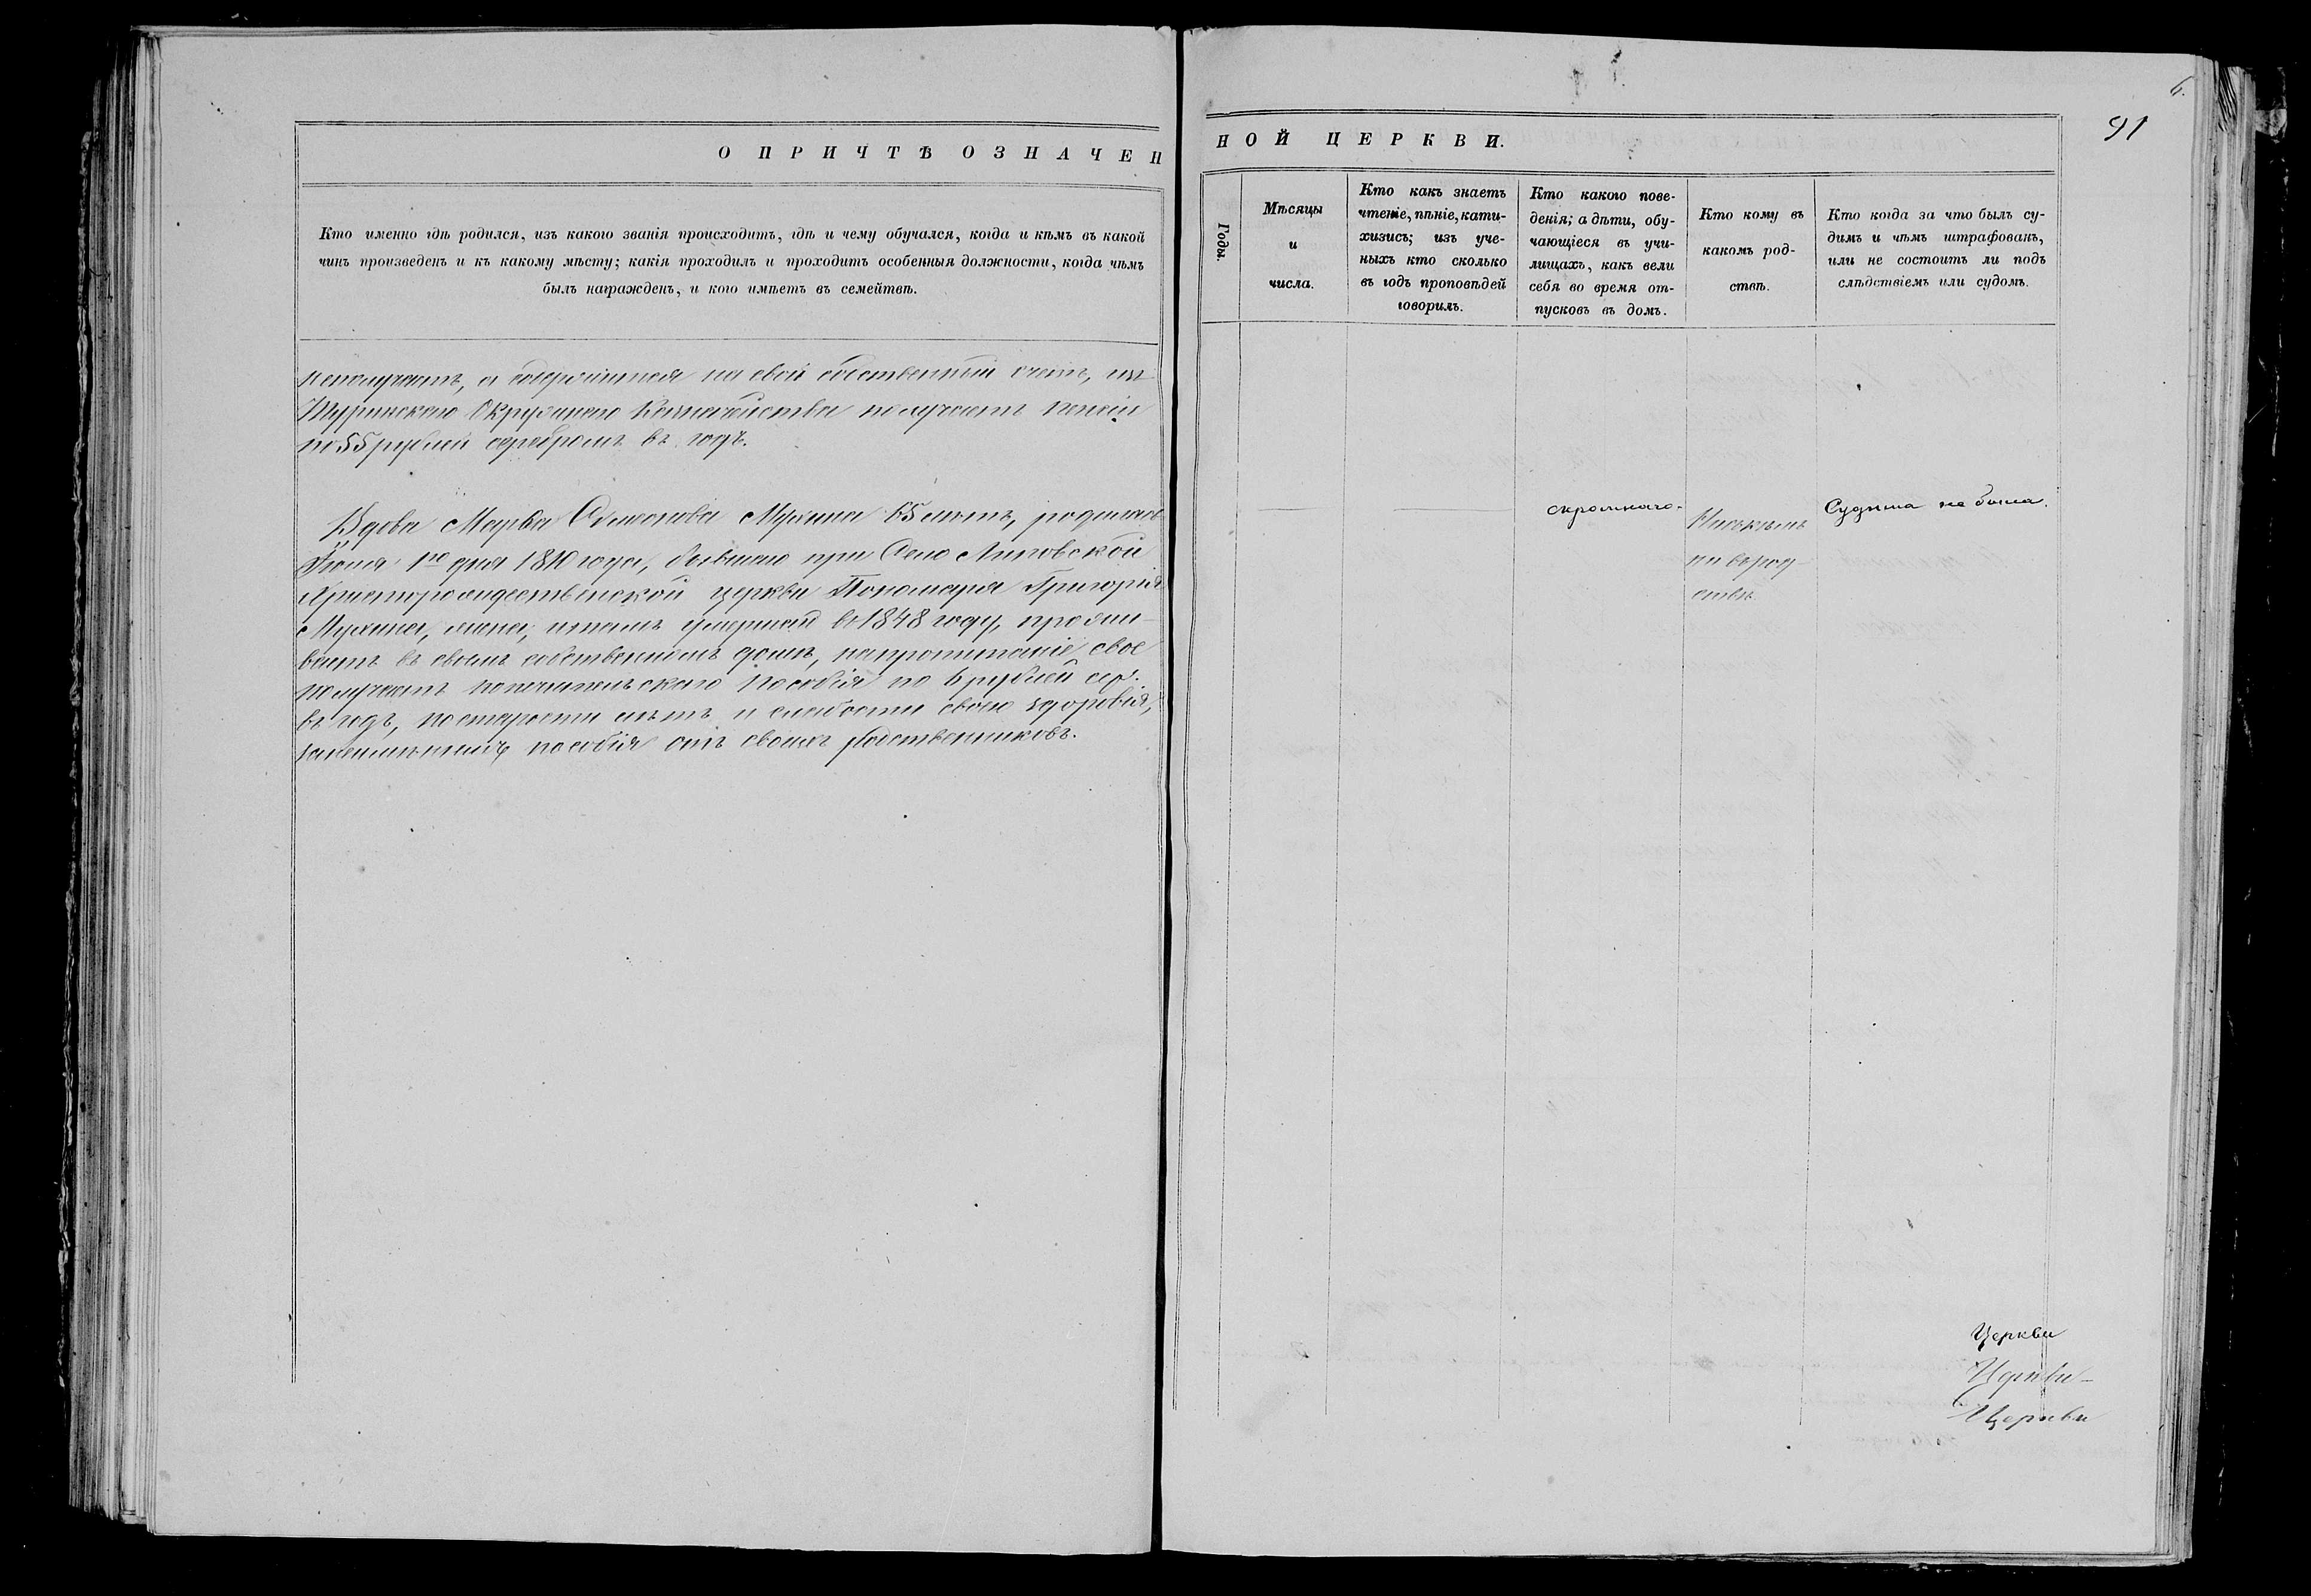 6.
91
О ПРИЧТѢ ОЗНАЧЕН
НОЙ ЦЕРКВИ.
Кто именно гдѣ родился, изъ какого званія происходитъ, гдѣ и чему обучался, когда и кѣмъ въ какой
чинъ произведенъ и къ какому мѣсту; какія проходилъ и проходитъ особенныя должности, когда чѣмъ
былъ награжденъ, и кого имѣетъ въ семействѣ.
неполучаетъ, а содержится на свой собственный счетъ, изъ
Туринскаго Окружнаго Казначейства получаетъ пенсіи
по 55 рублей серебромъ въ годъ.
Вдова Марѳа Мухина 65 лѣтъ, родилась
1го дня 1810 года, бывшаго при Селѣ Липовской
Христорождественской церкви Пономаря Григорія
Мухина, жена, умершаго въ 1848 году, прожи-
ваетъ въ своемъ собственномъ домѣ, напропитаніе свое
получаетъ попечительскаго пособія по 6 рублей сер.
въ годъ, по старости лѣтъ и слабости своего здоровія,
пособія отъ своихъ родственниковъ.
Годы.
Мѣсяцы
и
числа.
Кто какъ знаетъ
чтеніе, пѣніе, кати-
хизисъ; изъ уче-
ныхъ кто сколько
въ годъ проповѣдей
говорилъ.
Кто какого пове-
денія; а дѣти, обу-
чающіеся въ учи-
лищахъ, какъ вели
себя во время от-
пусковъ въ домъ.
скромнаго.
Кто кому въ
какомъ род-
ствѣ.
Нисъкѣмъ
ни въ род-
ствѣ.
Кто когда за что былъ су-
димъ и чѣмъ штрафованъ,
или не состоитъ ли подъ
слѣдствіемъ или судомъ.
Судима не была.
Церкви
Церкви-
Церкви